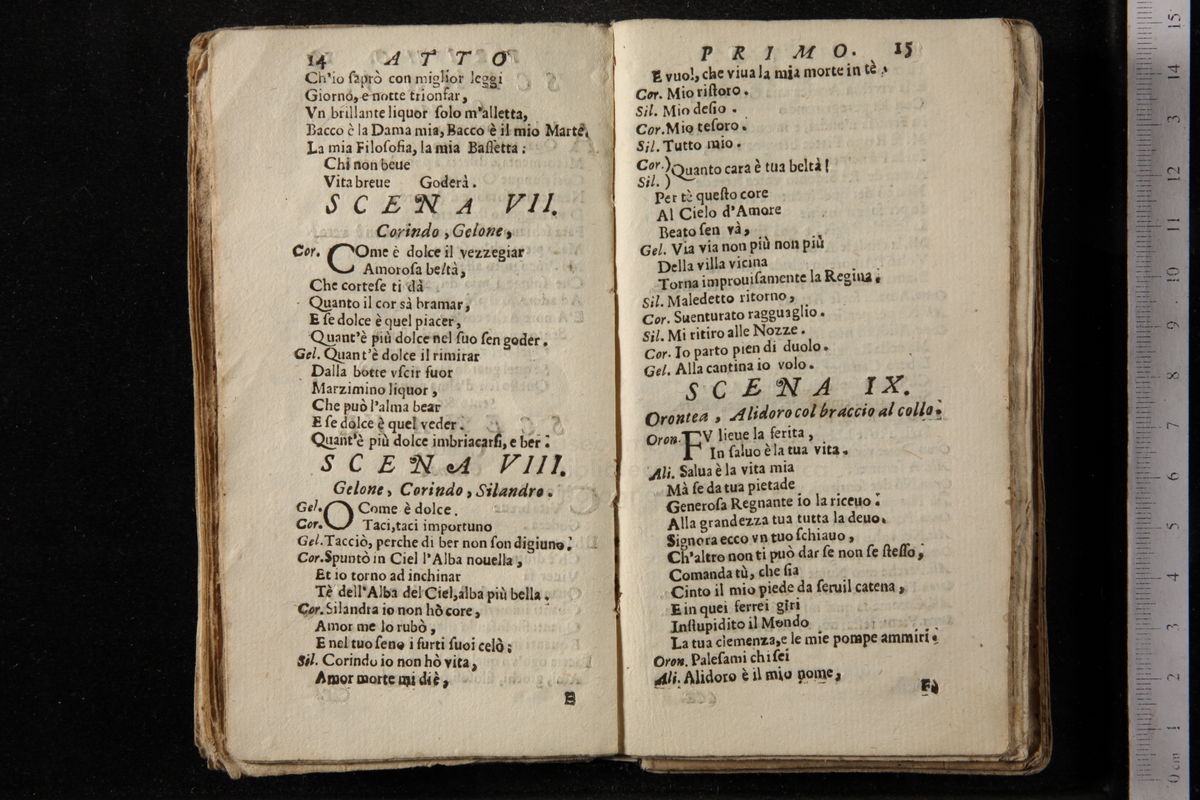 14 ATTO
Ch'io ſaprò con miglior leggi
Giorno, e notte trionfar,
Vn brillante liquor ſolo m'alletta,
Bacco è la Dama mia, Bacco è il mio Marte.
La mia Filoſofia, la mia Baſſetta:
Chi non beue
Vita breue Goderà.
SCENA VII.
Corindo, Gelone,
Cor. COme è dolce il vezzegiar
Amoroſa beltà,
Che corteſe ti dà
Quanto il cor sà bramar,
E ſe dolce è quel piacer,
Quant'è più dolce nel ſuo ſen goder.
Gel. Quant'è dolce il rimirar
Dalla botte vſcir fuor
Marzimino liquor,
Che può l'alma bear
E ſe dolce è quel veder.
Quant'è più dolce imbriacarſi, e ber:
SCENA VIII.
Gelone, Corindo, Silandro.
Gel. O Come è dolce.
Cor. Taci, taci importuno
Gel. Tacciò, perche di ber non ſon digiuno:
Cor. Spuntò in Ciel l'Alba nouella,
Et io torno ad inchinar
Tè dell'Alba del Ciel, alba più bella.
Cor. Silandra io non hò core,
Amor me lo rubò,
E nel tuo ſeno i furti ſuoi celò:
Sil. Corindo io non hò vita,
Amor morte mi diè,
B
PRIMO. 15
E vuol, che viua la mia morte in tè.
Cor. Mio riſtoro.
Sil. Mio deſio.
Cor. Mio teſoro.
Sil. Tutto mio.
Cor.) Quanto cara è tua beltà!
Sil. )
Per tè queſto core
Al Cielo d'Amore
Beato ſen và,
Gel. Via via non più non più
Della villa vicina
Torna improuiſamente la Regina.
Sil. Maledetto ritorno,
Cor. Suenturato ragguaglio.
Sil. Mi ritiro alle Nozze.
Cor. Io parto pien di duolo.
Gel. Alla cantina io volo.
SCENA IX.
Orontea, Alidoro col braccio al collo.
Oron. FV lieue la ferita,
In ſaluo è la tua vita.
Ali. Salua è la vita mia
Mà ſe da tua pietade
Generoſa Regnante io la riceuo:
Alla grandezza tua tutta la deuo.
Signora ecco vn tuo ſchiauo,
Ch'altro non ti può dar ſe non ſe ſteſſo,
Comanda tù, che ſia
Cinto il mio piede da ſeruil catena,
E in quei ferrei giri
Inſtupidito il Mondo
La tua clemenza, e le mie pompe ammiri.
Oron. Paleſami chi ſei
Ali. Alidoro è il mio nome,
Fù